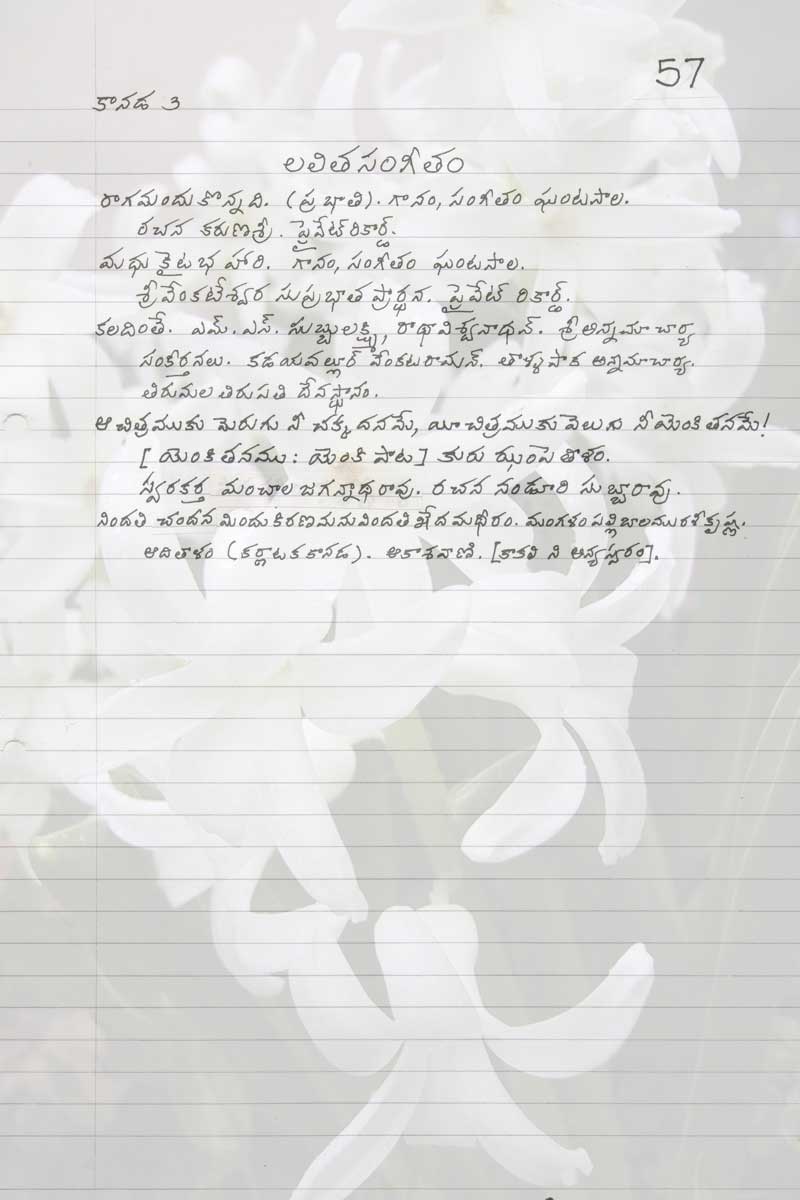 57
కానడ 3
లలిత సంగీతం
రాగమందుకొన్నది. (ప్రభాతి). గానం, సంగీతం ఘంటసాల.
రచన కరుణశ్రీ. ప్రైవేట్ రికార్డ్.
మధుకైటభ హారి. గానం, సంగీతం ఘంటసాల.
శ్రీ వేంకటేశ్వర సుప్రభాత ప్రార్థన. ప్రైవేట్ రికార్డ్.
కలదింతే. ఎమ్. ఎస్. సుబ్బులక్ష్మి, రాధావిశ్వనాథన్. శ్రీ అన్నమాచార్య
సంకీర్తనలు. కడయనల్లూర్ వేంకటరామన్. తాళ్ళపాక అన్నమాచార్య.
తిరుమల తిరుపతి దేవస్థానం.
ఆ చిత్రముకు మెరుగు నీ చక్కదనమే, యీ చిత్రముకు వెలుగు నీ యెంకితనమే!
[ యెంకితనము : యెంకి పాట ] కురు ఝంపె తాళం.
స్వరకర్త మంచాల జగన్నాధరావు. రచన నండూరి సుబ్బారావు.
నిందతి చందన మిందుకిరణమనువిందతి ఖేదమధీరం. మంగళంపల్లి బాలమురళీకృష్ణ.
ఆదితాళం (కర్ణాటక కానడ). ఆకాశవాణి. [కాకలి ని అన్యస్వరం].